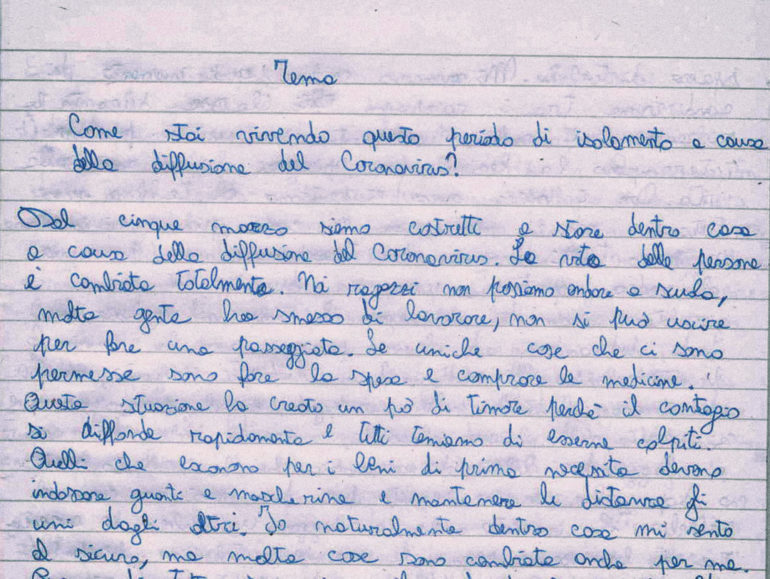 Tema
Come stai vivendo questo periodo di isolamento a causa
della diffusione del Coronavirus?
Dal cinque marzo siamo costretti a stare dentro casa
a causa della diffusione del Coronavirus. La vita delle persone
è cambiata totalmente. Noi ragazzi non possiamo andare a scuola,
molta gente ha smesso di lavorare, non si può uscire
per fare una passeggiata. Le uniche cose che ci sono
permesse sono fare la spesa e comprare le medicine.
Questa situazione ha creato un pò di timore perché il contagio
si diffonde rapidamente e tutti temiamo di esserne colpiti.
Quelli che escono per i beni di prima necessità devono
indossare guanti e mascherine e mantenere le distanze gli
uni dagli altri. Io naturalmente dentro casa mi sento
al sicuro, ma molte cose sono cambiate anche per me.